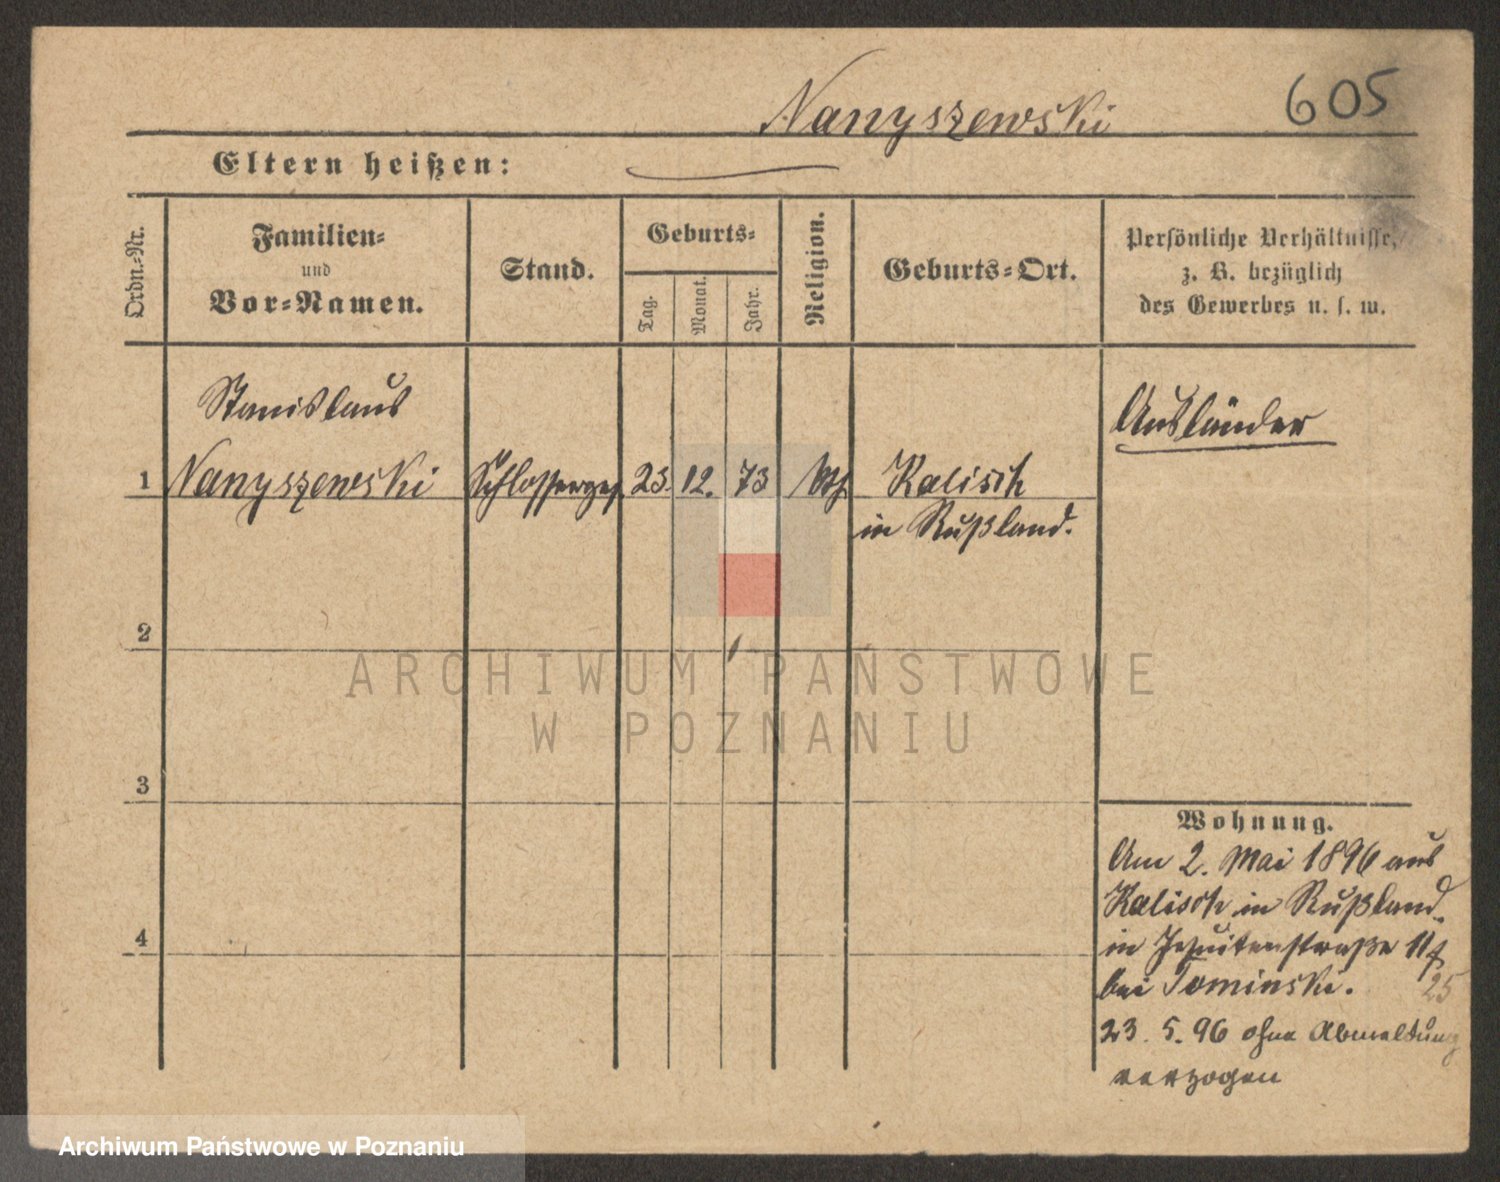 Nanyszewski
605
Eltern heißen:
Ordn.-Nr.
Familien-
und
Vor-Namen.
Stand.
Geburts-
Tag.
Monat.
Jahr.
Religion.
Geburts-Ort.
Persönliche Verhältnisse,
z. B. bezüglich
des Gewerbes u. s. w.
Stanislaus
1 Nanyszewski Schlosserges. 23. 12. 73 Kalisch
in Rußland.
Ausländer
2
3
4
Wohnung.
Am 2. Mai 1896 aus
Kalisch in Rußland.
in Jesuitenstraße 11
bei Tominski. 25
23. 5. 96 ohne Abmeldung
verzogen
ARCHIWUM PAŃSTWOWE
W POZNANIU
Archiwum Państwowe w Poznaniu